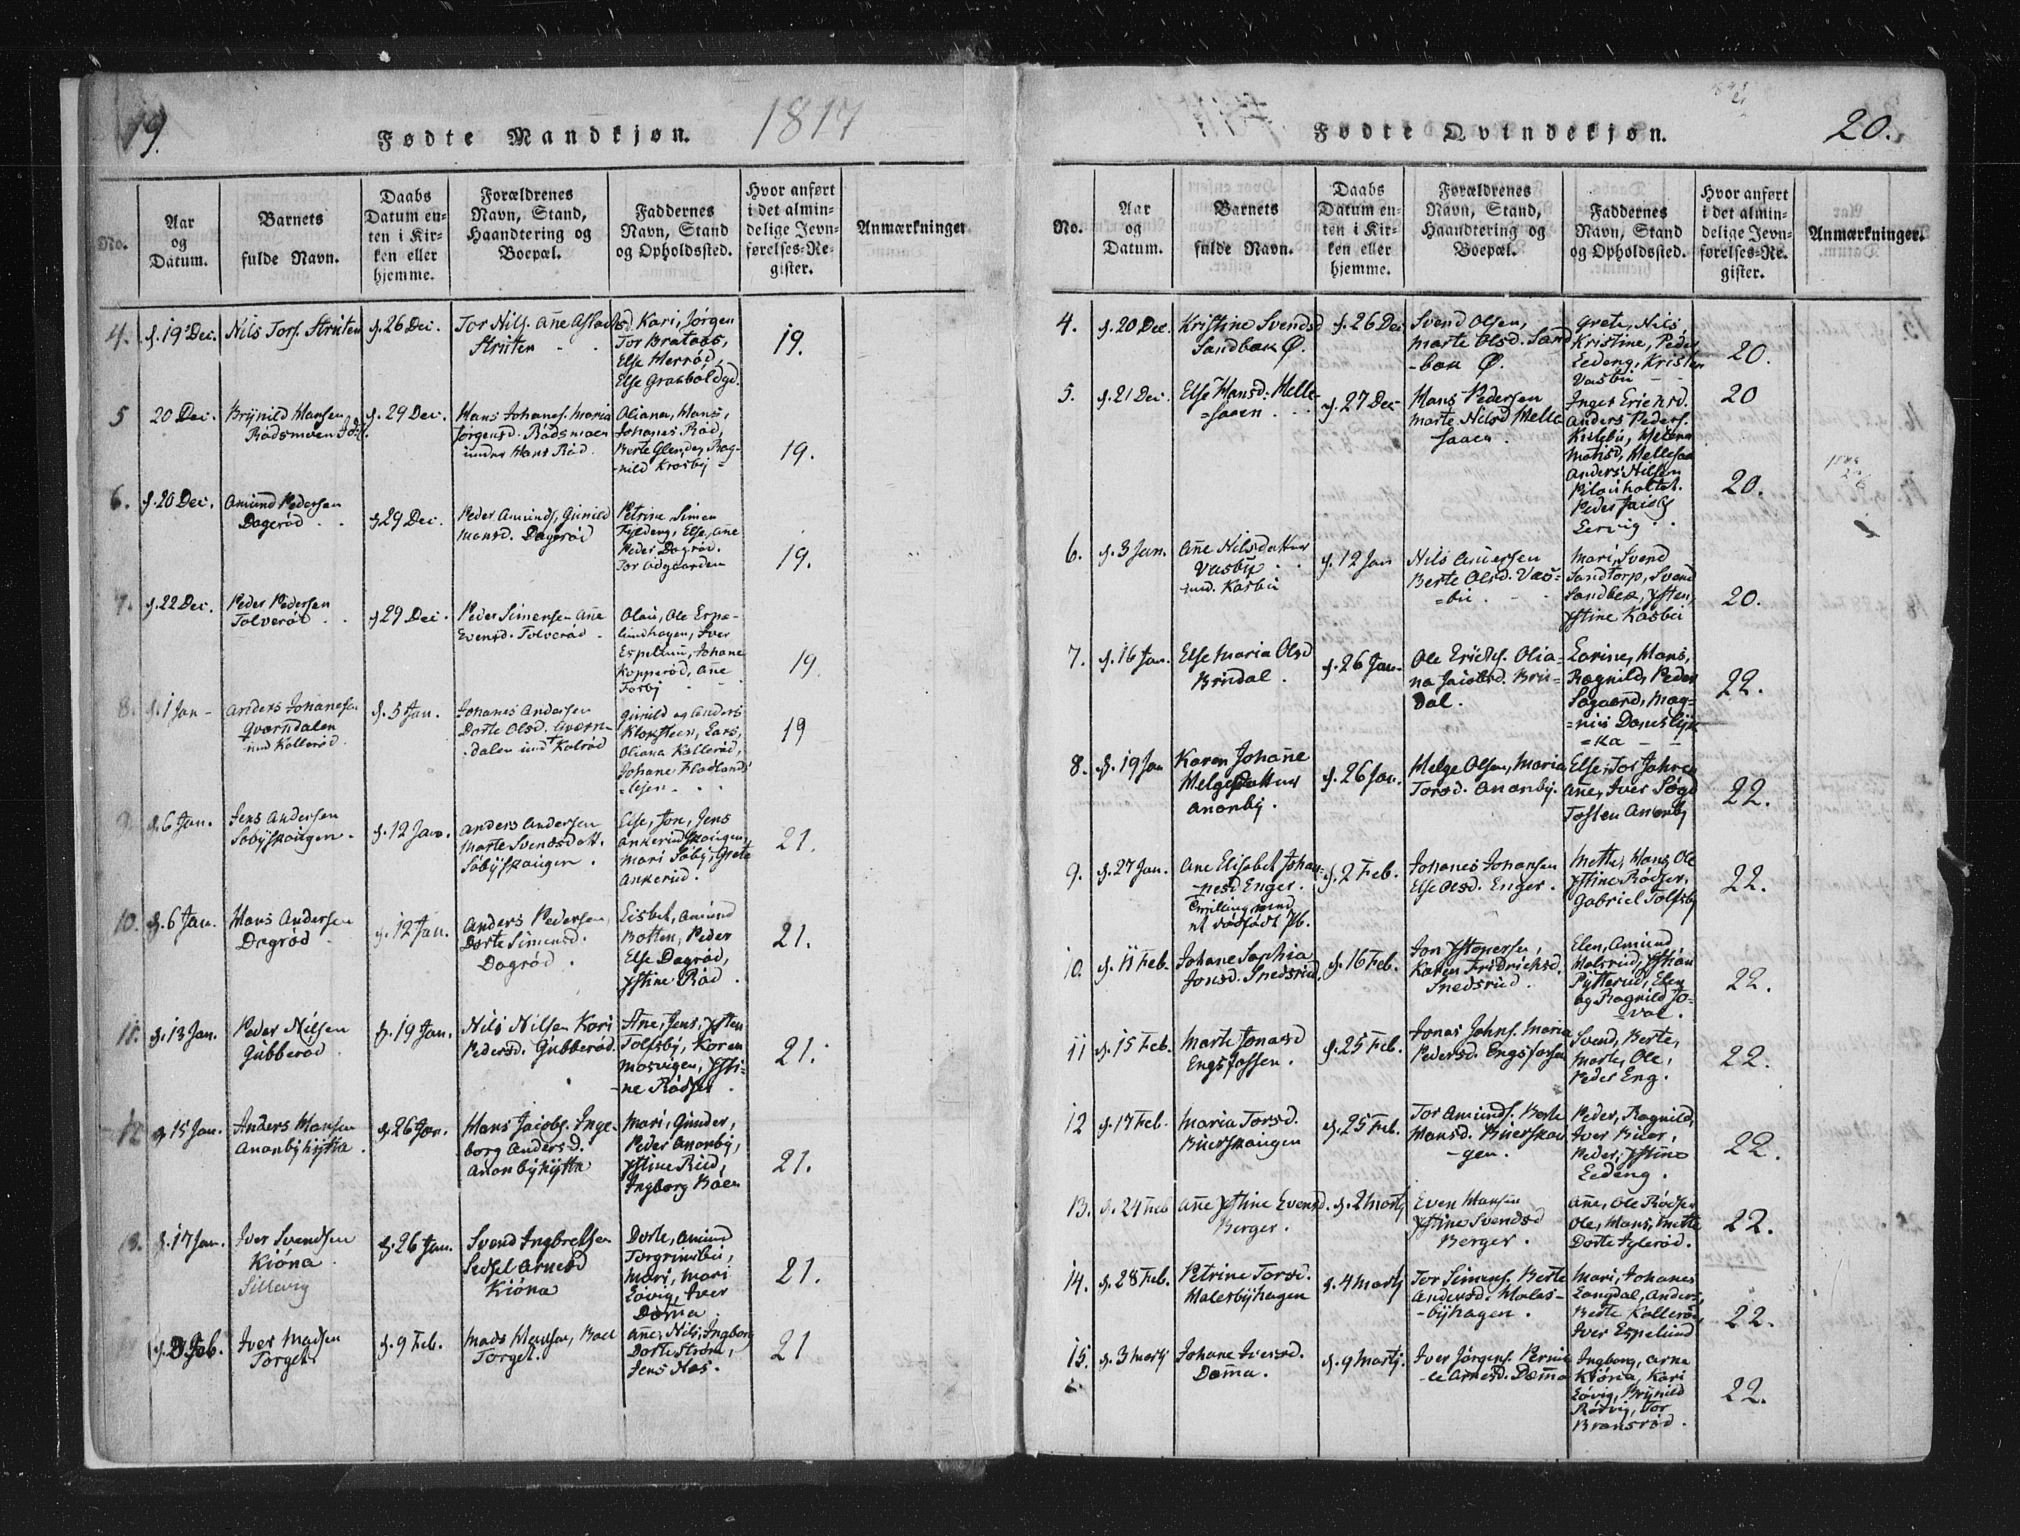 19.
Fødte Mandkjøn.
1817
No.
Aar
og
Datum.
Barnets
fulde Navn.
Daabs
Datum en-
ten i Kir-
ken eller
hjemme.
Forældrenes
Navn, Stand,
Haandtering og
Boepæl.
Faddernes
Navn, Stand
og Opholdssted.
Hvor anført
i det almin-
delige Jevn-
førelses-Re-
gister.
Anmærkninger
4. f. 19 Dec. Nils Tors. Struten f. 26 Dec.
Tor Nils. Añe
Struten
Kari, Jørgen
Tor Brataas,
Else Herrød,
Else
19.
5 20 Dec. Brynild Hansen
Rødsmoen
f. 29 Dec.
Hans Johans. Maria
Jørgensd. Rødsmoen
under Hans Rød.
Oliana, Hans,
Johanes Rød,
Berte Glende, Rag-
nild Krosby
19.
6. f. 20 Dec. Amund Pedersen
Dagerød
f. 29 Dec.
Peder Amunds. Gunild
Hansd. Dagerød
Petrine Simen
Else, Añe
Peder Dagrød.
Tor Odgaarden
19.
7. f. 22 Dec. Peder Pedersen
Tolverød
f. 29 Dec.
Peder Simensen Añe
Evensd. Tolverød
Olau, Ole Espe-
lundhagen, Iver
Espelund, Johane
Kopperød, Añe
Fosby
19
8. f. 1 Jan - Anders Johanesen
Qværndalen
und Kollerød.
f. 5 Jan.
Johanes Andersen
Dorte Olsd. Qværn-
dalen und Kolrød
Gunild og Anders
Klopsteen, Lars,
Oliana Kollerød,
Johane
19
9. f. 6 Jan. Jens Andersen
Søbyskougen
f. 12 Jan.
Anders Andersen
Marte Svendsdatt.
Søbyskougen.
Else, Jon, Jens
Ankerudskougen,
Mari Søby, Grete
Ankerud.
21.
10. f. 6 Jan. Hans Andersen
Dagrød
f. 12 Jan.
Anders Pedersen
Dorte Simensd.
Dagrød.
Lisbet, Amund
Botten, Peder
Else Dagrød,
Ystine Rød
21.
11. f. 13 Jan. Peder Nilsen
Gubberød
f. 19 Jan.
Nils Nilsen Kari
Pedersd. Gubberød.
Añe, Jens, Ysten
Tolfsby, Karen
Mosvigen, Ysti-
ne Rødser
21.
12 f. 15 Jan. Anders Hansen
Ananbyhytta
f. 26 Jan.
Hans Jacobs. Inge-
borg Andersd.
Ananbyhytta
Mari, Gunder,
Peder Ananby,
Ystine Rud,
Ingborg Boen
21.
13. f. 17 Jan. Iver Svendsen
Kiøna
Sillevig
f. 26 Jan.
Svend Ingbretsen
Sedsel Arnesd
Kiøna
Dorte, Amund
Torgrimsbu,
Mari, Mari
Løvig, Iver
Dæm̃a
21.
Iver Madsen
Torget.
f. 9 Feb.
Mads Hansen,
Torget.
Añe, Nils, Ingborg
Dorte Strøm,
Jens Næs.
21
Fødte Qvindekjøn.
20.
No.
Aar
og
Datum.
Barnets
fulde Navn.
Daabs
Datum en-
ten i Kir-
ken eller
hjemme.
Forældrenes
Navn, Stand,
Haandtering og
Boepæl.
Faddernes
Navn, Stand
og Opholdssted.
Hvor anført
i det almin-
delige Jevn-
førelses-Re-
gister.
Anmærkninger.
4. f. 20 Dec. Kristine Svendsd
Sandbæk Ø.
f. 26 Dec
Svend Olsen,
Marte Olsd. Sand
-bæk Ø.
Grete, Nils,
Kristine, Peder
Eedeng, Kristen
Vasbu
20.
5. f. 21 Dec. Else Hansd. Melle-
=saaen
f. 27 Dec
Hans Pedersen
Marte Nilsd Melle
saaen
Inger Ericksd.
Anders Peders.
Matisd, Mellesaa
Anders Nilsen
Peder Jacobs
20
20.
6. f. 3 Jan. Añe Nilsdatter
Vasby
und. Kasbu
f. 12 Jan
Nils Andersen
Berte Olsd. Vas-
=bu
Mari, Svend
Sandtorp, Svend
Sandbek, Ysten,
Ystine Kasbu
20.
7. f. 16 Jan. Else Maria Olsd
Brudal.
f. 26 Jan.
Ole Ericks. Olia-
na Jacobsd. Bru-
dal.
Larine, Hans,
Ragnild, Peder
Søgaard, Mag-
=nus
=ka
22.
8. f. 19 Jan Karen Johañe
Helgesdatter
Ananby.
f. 26 Jan.
Helge Olsen, Maria
Torsd. Ananby.
Else, Tor
Añe, Iver
Tosten Ananby
22.
9. f. 27 Jan. Ane Elisabet Johan-
-nesd Enger.
Tvilling med
et dødfødt Pb.
f. 2 Feb.
Johanes Johansen
Else Olsd. Enger.
Mette, Hans, Ole
Ystine Rødser,
Gabriel Tolfsby
22.
10. f. 11 Feb. Johane Sophia
Jonsd. Snedsrud
f. 16 Feb.
Jon Ystensen,
Karen Fridrichsd.
Snedsrud.
Elen, Amund
Holsrud, Ystian
Pytterud, Elen
og Ragnild To-
val.
22.
11 f. 15 Feb. Marte Jonasd
Engsfossen.
f. 25 Feb.
Jonas Johns. Maria
Pedersd. Engsfossen
Svend, Berte,
Marte, Ole,
Peder Eng.
22.
12 f. 17 Feb. Maria Torsd.
Buerskougen
f. 25 Feb.
Tor Amunds. Berte
Hansd. Buerskou
-gen.
Peder, Ragnild,
Iver Buer,
Peder, Ystine
Eedeng.
22.
13. f. 24 Feb Añe Ystine Evensd.
Berger.
f. 2 Martj
Even Hansen
Ystine Svendsd
Berger.
Añe, Ole Rødser
Ole, Hans, Mette
Dorte Iglerød.
22.
14. f. 28 Feb. Petrine Torsd.
Halesbyhagen
f. 4 Martj
Tor Simens. Berte
Andersd. Hales-
-byhagen.
Mari, Johanes
Langdal, Anders,
Berte Kollerød,
Iver Espelund
22.
15. f. 3 Martj Johane Iversd.
Dæm̃a.
f. 9 Martj.
Iver Jørgens. Pernil
-le Arnesd. Dæm̃a
Ingborg, Arne
Kiøna, Kari
Løvig, Brynild
Rødvig, Tor
Bransrød.
22.